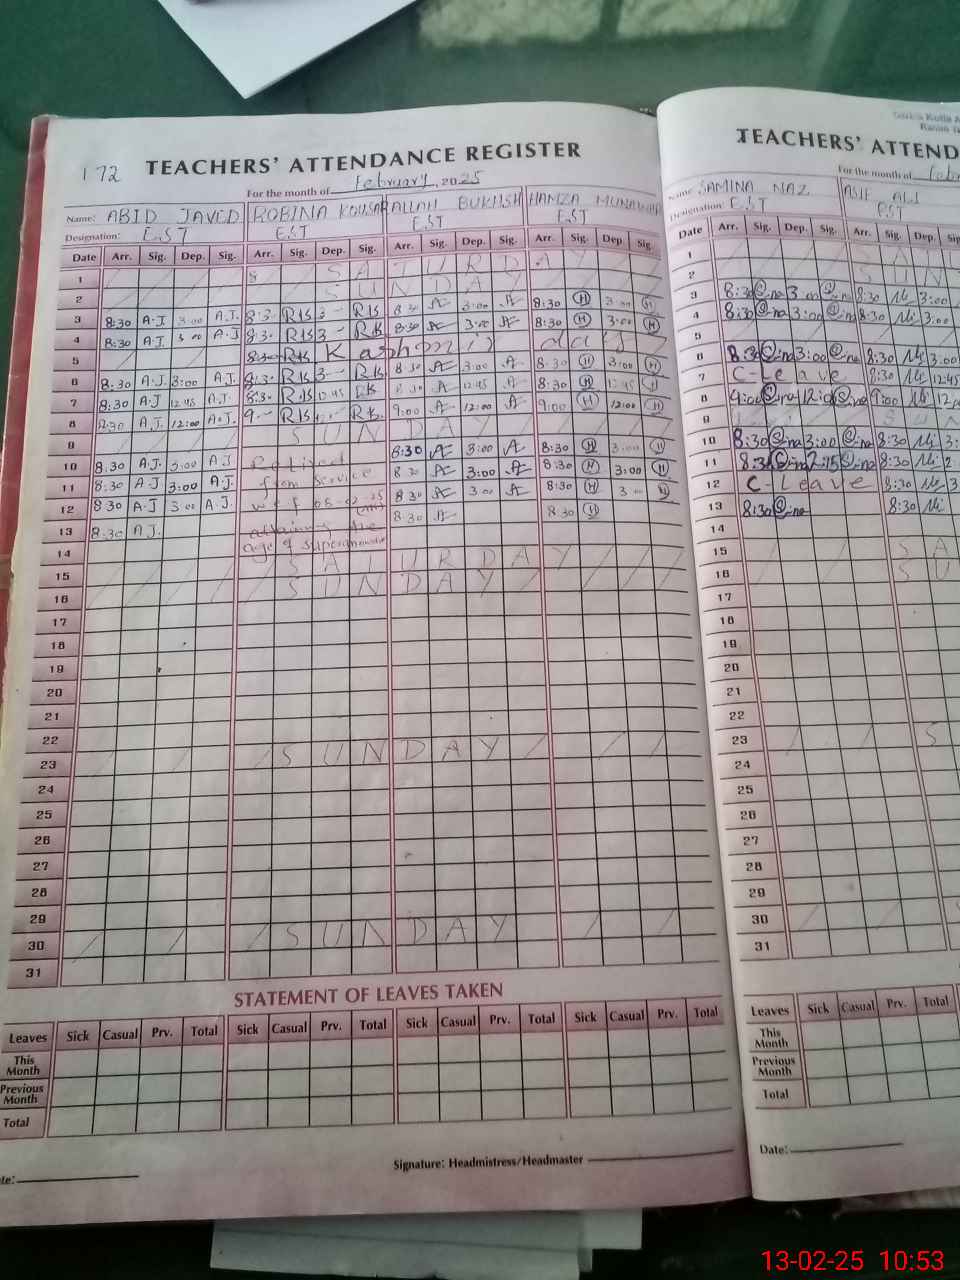 172 TEACHERS' ATTENDANCE REGISTER
For the month of February, 2025
Name: ABID JAVED ROBINA KOUSAR ALLAH BUKHSH HAMZA MUNAWAR
Designation: EST EST EST EST
Date Arr. Sig. Dep. Sig. Arr. Sig. Dep. Sig. Arr. Sig. Dep. Sig. Arr. Sig. Dep Sig.
1 SATURDAY
2 SUNDAY
3 8:30 A.J 3:00 A.J. 8:30 RK 3- RK 8:30 3:00 8:30 H 3:00 H
4 8:30 A.J 3:00 A.J 8:30 RK 3- RK 8:30 3:00 8:30 H 3:00 H
5 Kashmir day
6 8:30 A.J 3:00 A.J. 8:30 RK 3- RK 8:30 3:00 8:30 H 3:00 H
7 8:30 A.J 12:45 A.J. 8:30 RK 12:45 RK 8:30 12:45 8:30 H 12:45 H
8 8:30 A.J. 12:00 A.J. 9- RK RK 9:00 12:00 9:00 H 12:00 H
9 SUNDAY
10 8:30 A.J. 3:00 A.J Retired 8:30 3:00 8:30 H 3:00 H
11 8:30 A.J. 3:00 A.J. from service 8:30 3:00 8:30 H 3:00 H
12 8:30 A.J 3:00 A.J. w.e.f 08-02-25 8:30 3:00 8:30 H 3:00 H
13 8:30 A.J. attaining the 8:30 8:30 H
14 age of superannuation
15 SATURDAY
16 SUNDAY
17
18
19
20
21
22
23 SUNDAY
24
25
26
27
28
29
30 SUNDAY
31
STATEMENT OF LEAVES TAKEN
Leaves Sick Casual Prv. Total Sick Casual Prv. Total Sick Casual Prv. Total Sick Casual Prv. Total
This Month
Previous Month
Total
Signature: Headmistress/Headmaster
TEACHERS' ATTEND
For the month of
Name: SAMINA NAZ ASIF ALI
Designation: EST EST
Date Arr. Sig. Dep. Sig. Arr. Sig. Dep.
1 SA
2 SUN
3 8:30 3:00 8:30 3:00
4 8:30 3:00 8:30 3:00
5
6 8:30 3:00 8:30 3:00
7 C-Leave 8:30 12:45
8 9:00 12:00 9:00
9 SUN
10 8:30 3:00 8:30
11 8:30 2:15 8:30
12 C-Leave 8:30
13 8:30 8:30
14
15 SA
16 SU
17
18
19
20
21
22
23 S
24
25
26
27
28
29
30
31
Leaves Sick Casual Prv. Total Sick
This Month
Previous Month
Total
Date:
13-02-25 10:53